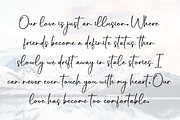 Our love is just an illusion. Where
friends become a definite status. then
slowly we drift away in stale stories. I
can never even touch you with my heart. Our
love has become too comfortable.